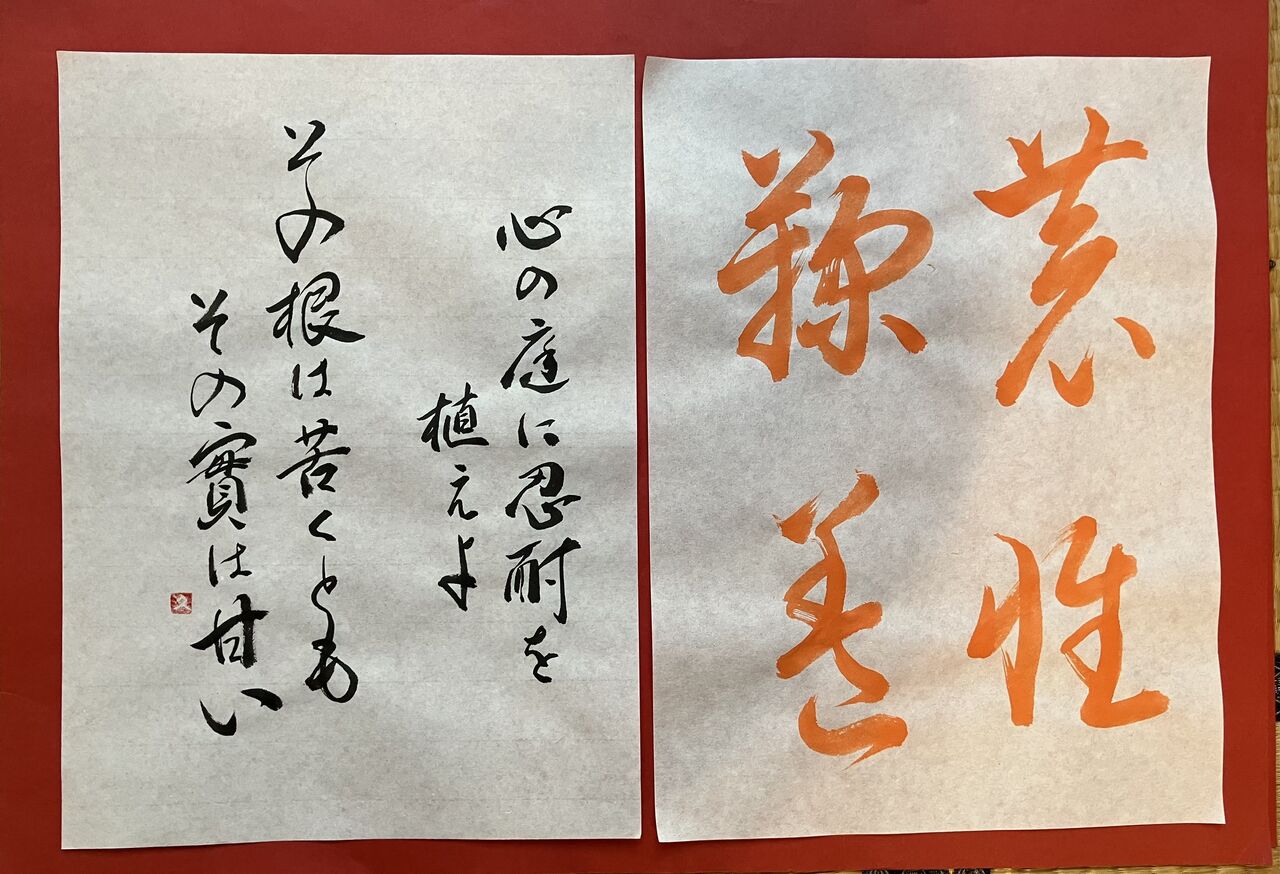 恭惟
鞠養
心の庭に忍耐を
植えよ
その根は苦くとも
その實は甘い